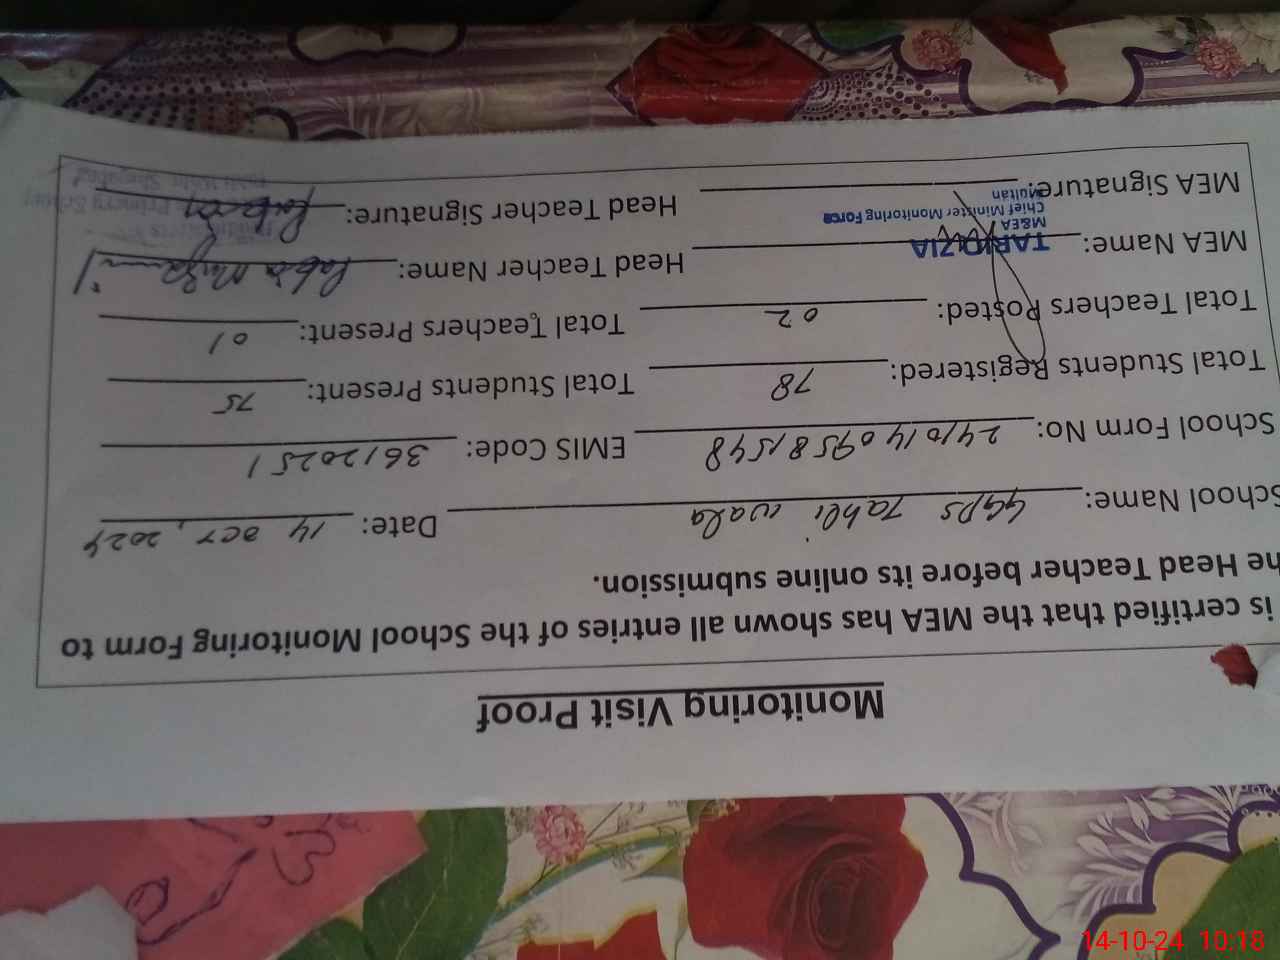 Monitoring Visit Proof
is certified that the MEA has shown all entries of the School Monitoring Form to
he Head Teacher before its online submission.
School Name: GGPS Tahli wala Date: 14 OCT, 2024
School Form No: 24101409581548 EMIS Code: 36120251
Total Students Registered: 78 Total Students Present: 75
Total Teachers Posted: 02 Total Teachers Present: 01
MEA Name: TARIQ ZIA Head Teacher Name:
M&EA
Chief Minister Monitoring Force
Multan
MEA Signature: Head Teacher Signature:
14-10-24 10:18